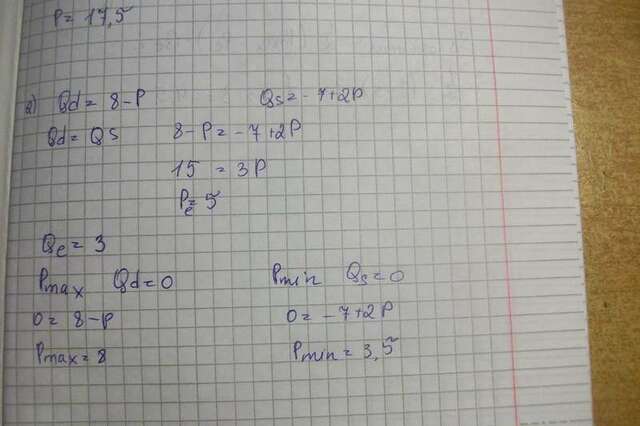 P = 17,5
2) Qd = 8-P Qs = -7+2P
Qd = QS 8-P = -7+2P
15 = 3P
Pe = 5
Qe = 3
Pmax Qd=0 Pmin Qs=0
0 = 8-P 0 = -7+2P
Pmax = 8 Pmin = 3,5